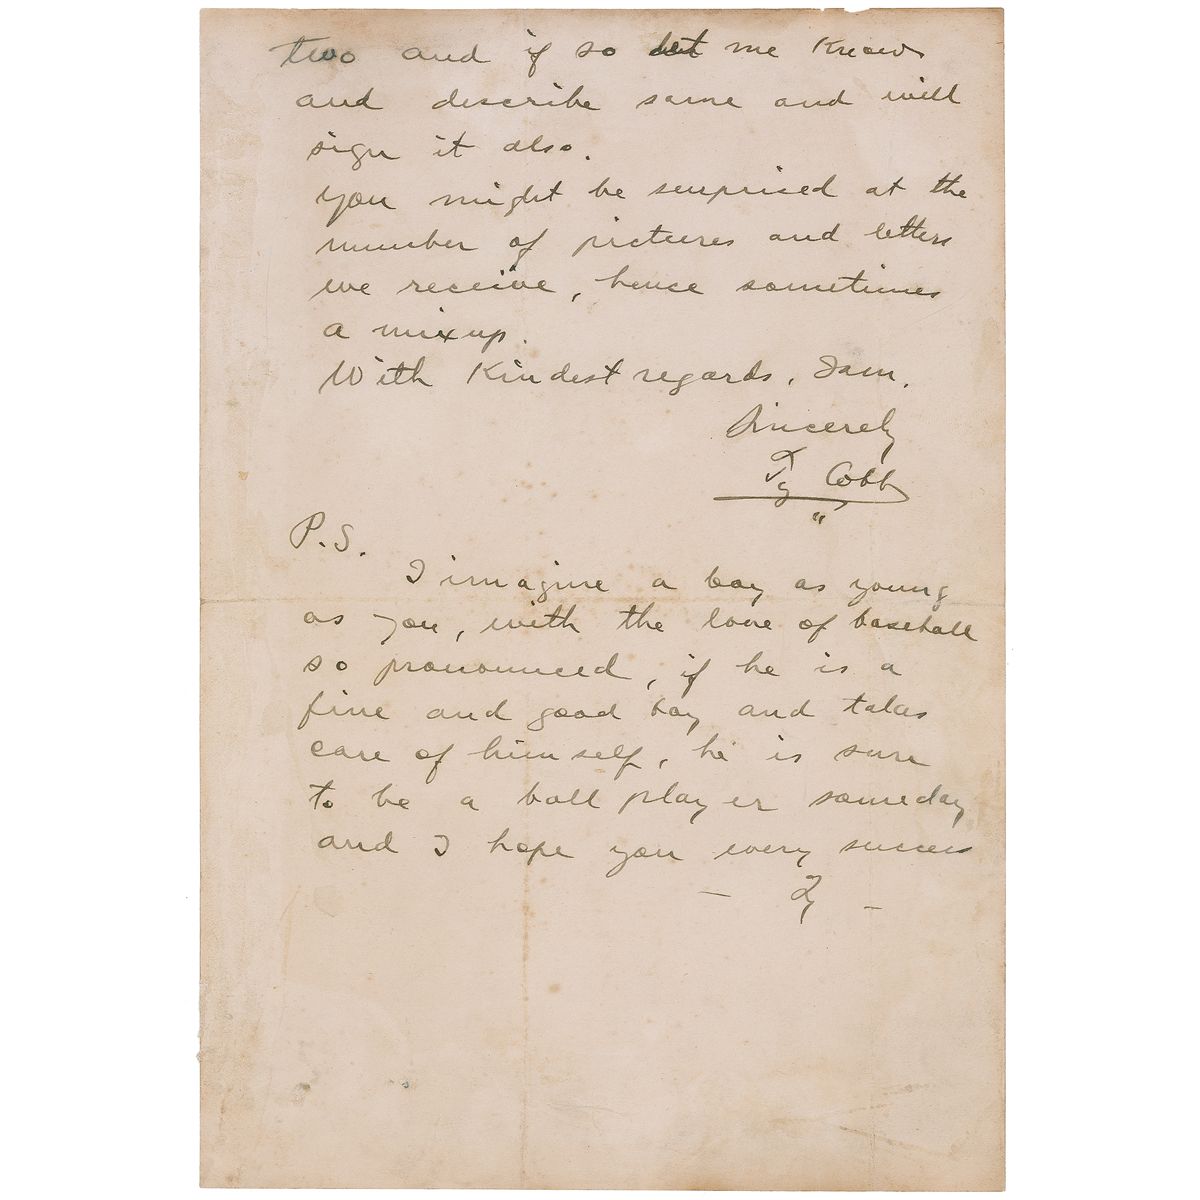 two and if so let me know
and describe same and will
sign it also.
you might be surprised at the
number of pictures and letters
we receive, hence sometimes
a mixup.
With Kindest regards, I am,
Sincerely
Ty Cobb
"
P.S.
I imagine a boy as young
as you, with the love of baseball
so pronounced, if he is a
fine and good boy and takes
care of himself, he is sure
to be a ball player someday
and I hope you every success
— Ty —